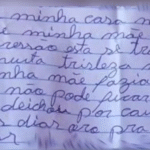 minha casa m
e minha mãe
ressão esta se tra
muita tristeza s
nha mãe fazia
não pode ficar
deichou por cau
s dias oro pra